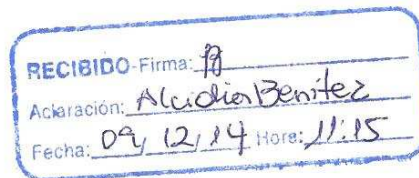 RECIBIDO-Firma:
Aclaración: Alcidia Benítez
Fecha: 09/12/14 Hora: 11:15